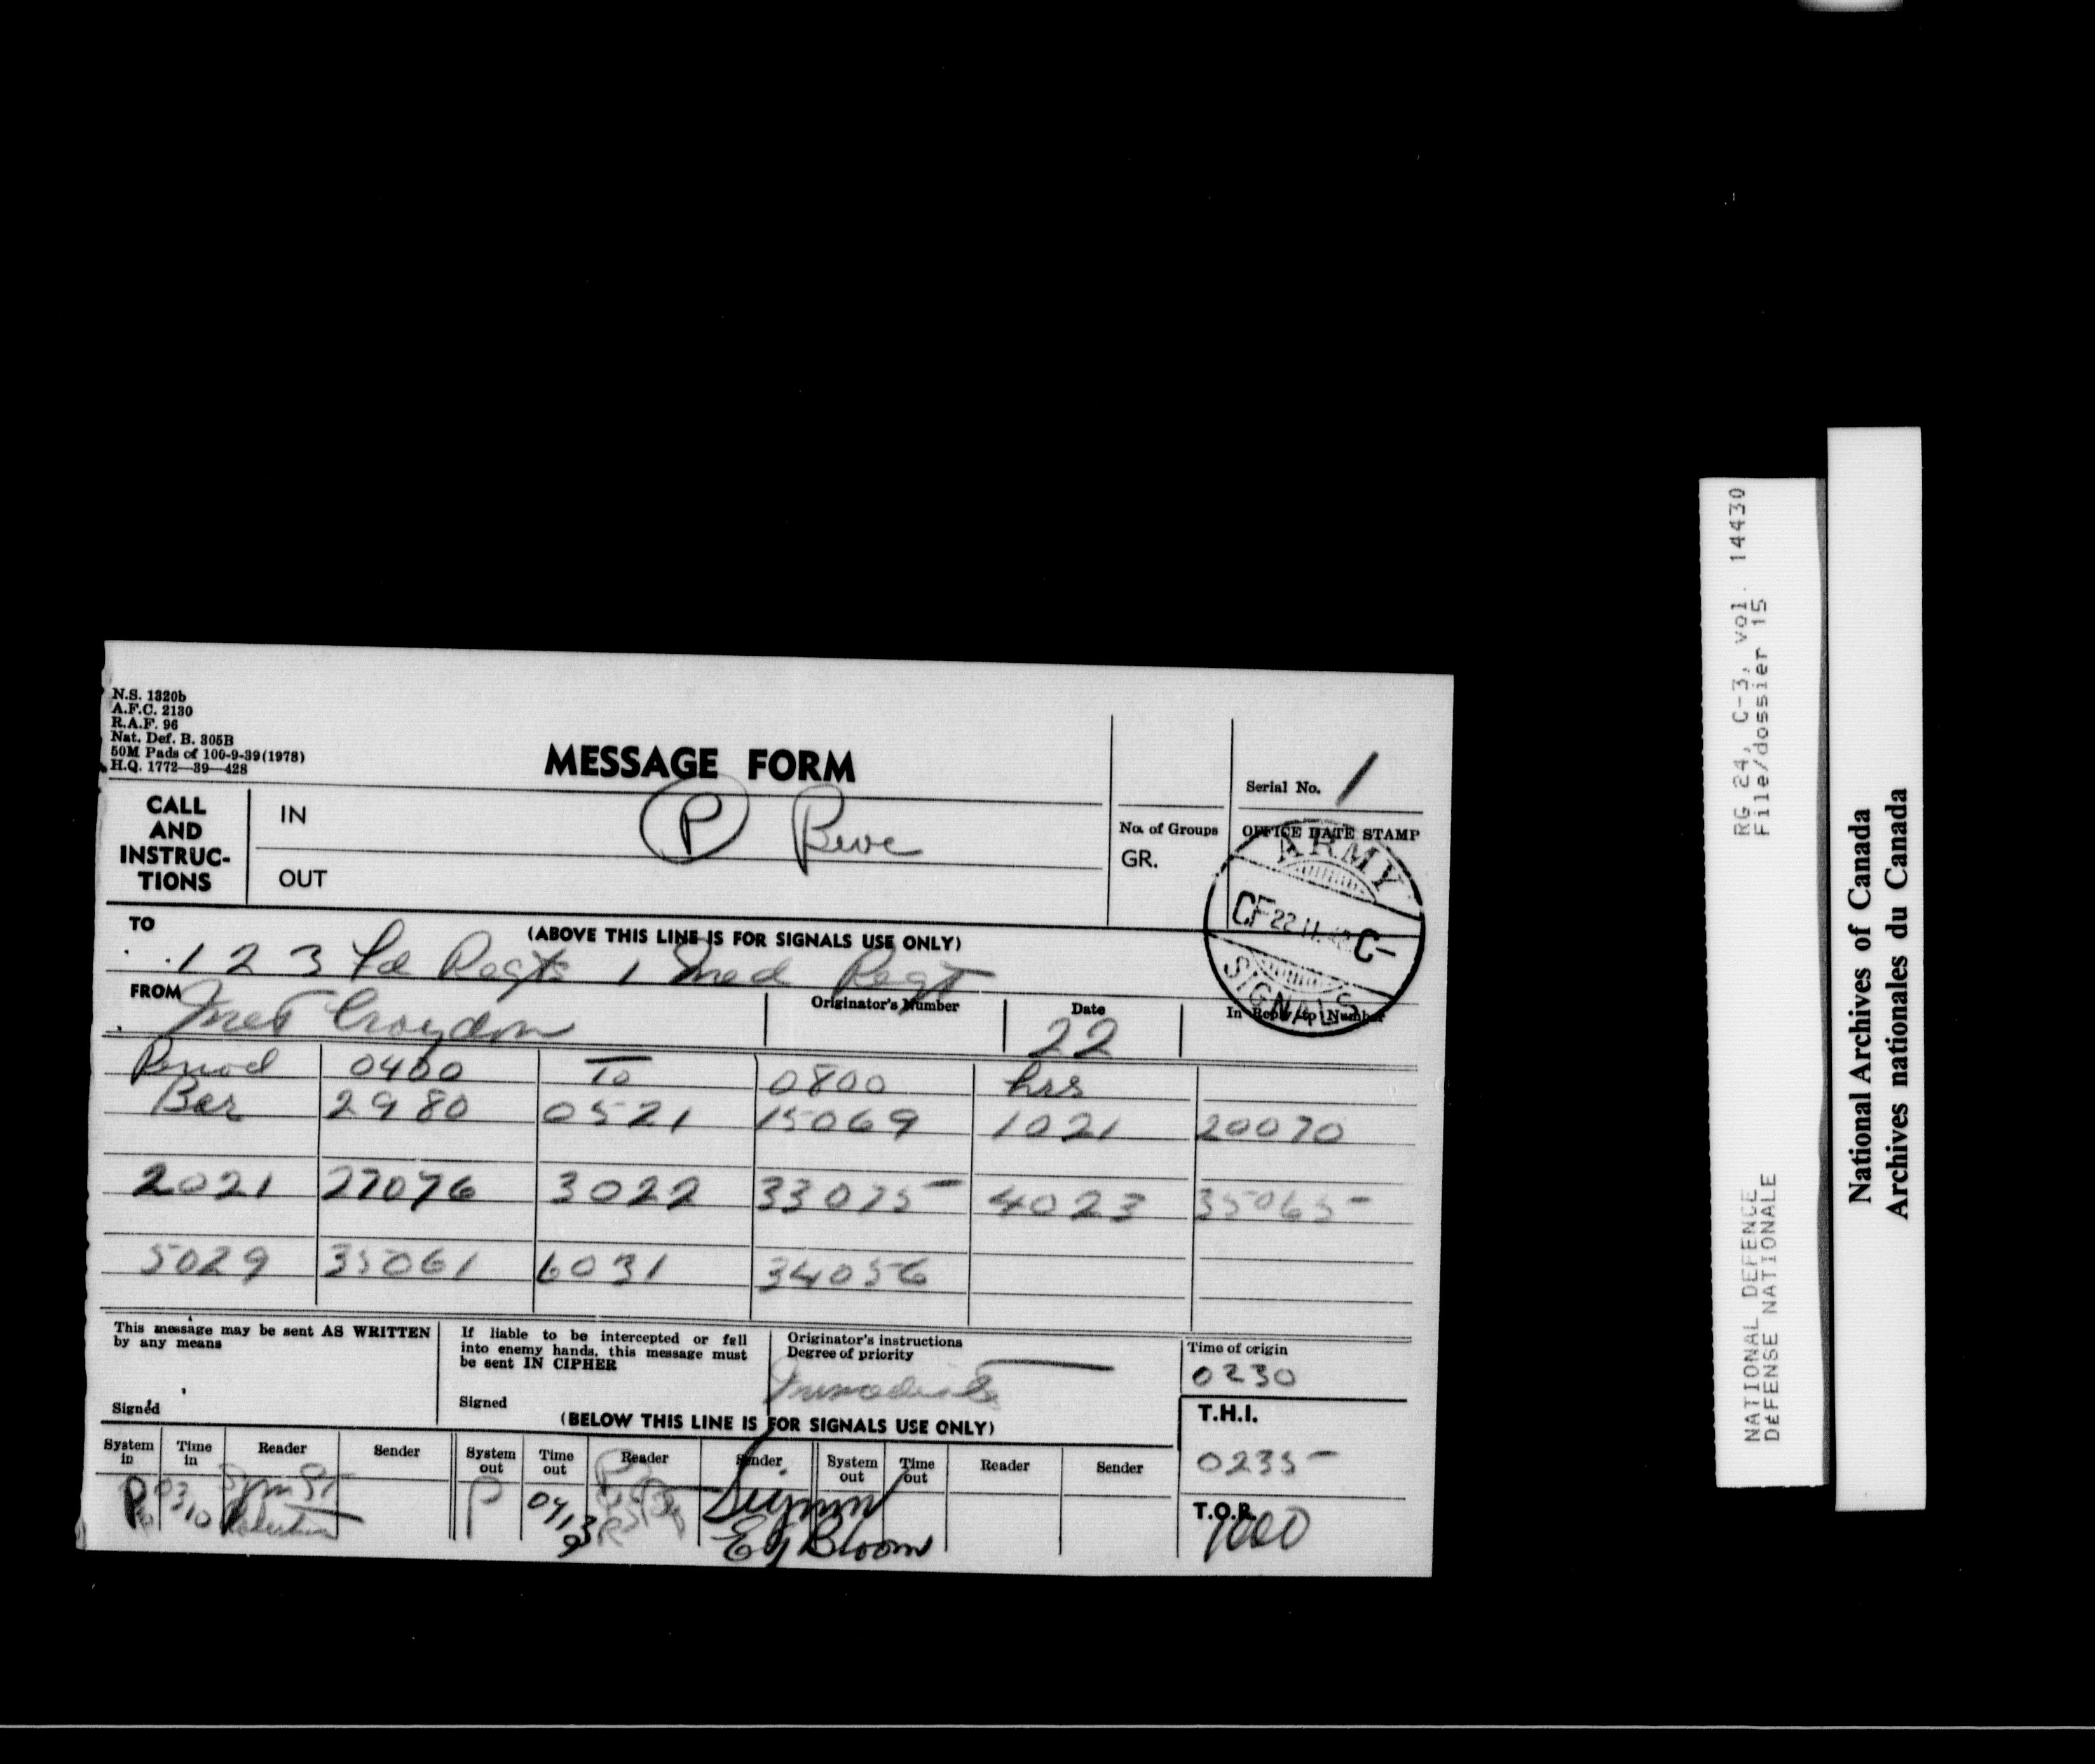 N.S. 1320b
A.F.C. 2130
R.A.F. 96
Nat. Def. B. 305B
50M Pads of 100-9-39(1978)
H.Q. 1772—39—428
MESSAGE FORM
Serial No. 1
CALL AND INSTRUC-TIONS
IN
P
OUT
No. of Groups
GR.
OFFICE DATE STAMP
ARMY
CF 22 11 C-
SIGNALS
TO
(ABOVE THIS LINE IS FOR SIGNALS USE ONLY)
1 2 3 Fd Regts 1 Med Regt
FROM
Met Croydon
Originator's Number
Date
22
In Reply to Number
Period 0400 To 0800 hrs
Bar 2980 0521 15069 1021 20070
2021 27076 3022 33075 4023 35065
5029 35061 6031 34056
This message may be sent AS WRITTEN
by any means
Signed
If liable to be intercepted or fall
into enemy hands, this message must
be sent IN CIPHER
Signed
Originator's instructions
Degree of priority
Immediate
Time of origin
0230
(BELOW THIS LINE IS FOR SIGNALS USE ONLY)
T.H.I.
0235
System in
Time in
Reader
Sender
System out
Time out
Reader
Sender
System out
Time out
Reader
Sender
P
0310
P
Sigmn
EJ Bloom
T.O.R.
RG 24, C-3, vol. 14430
File/dossier 15
NATIONAL DEFENCE
DÉFENSE NATIONALE
National Archives of Canada
Archives nationales du Canada